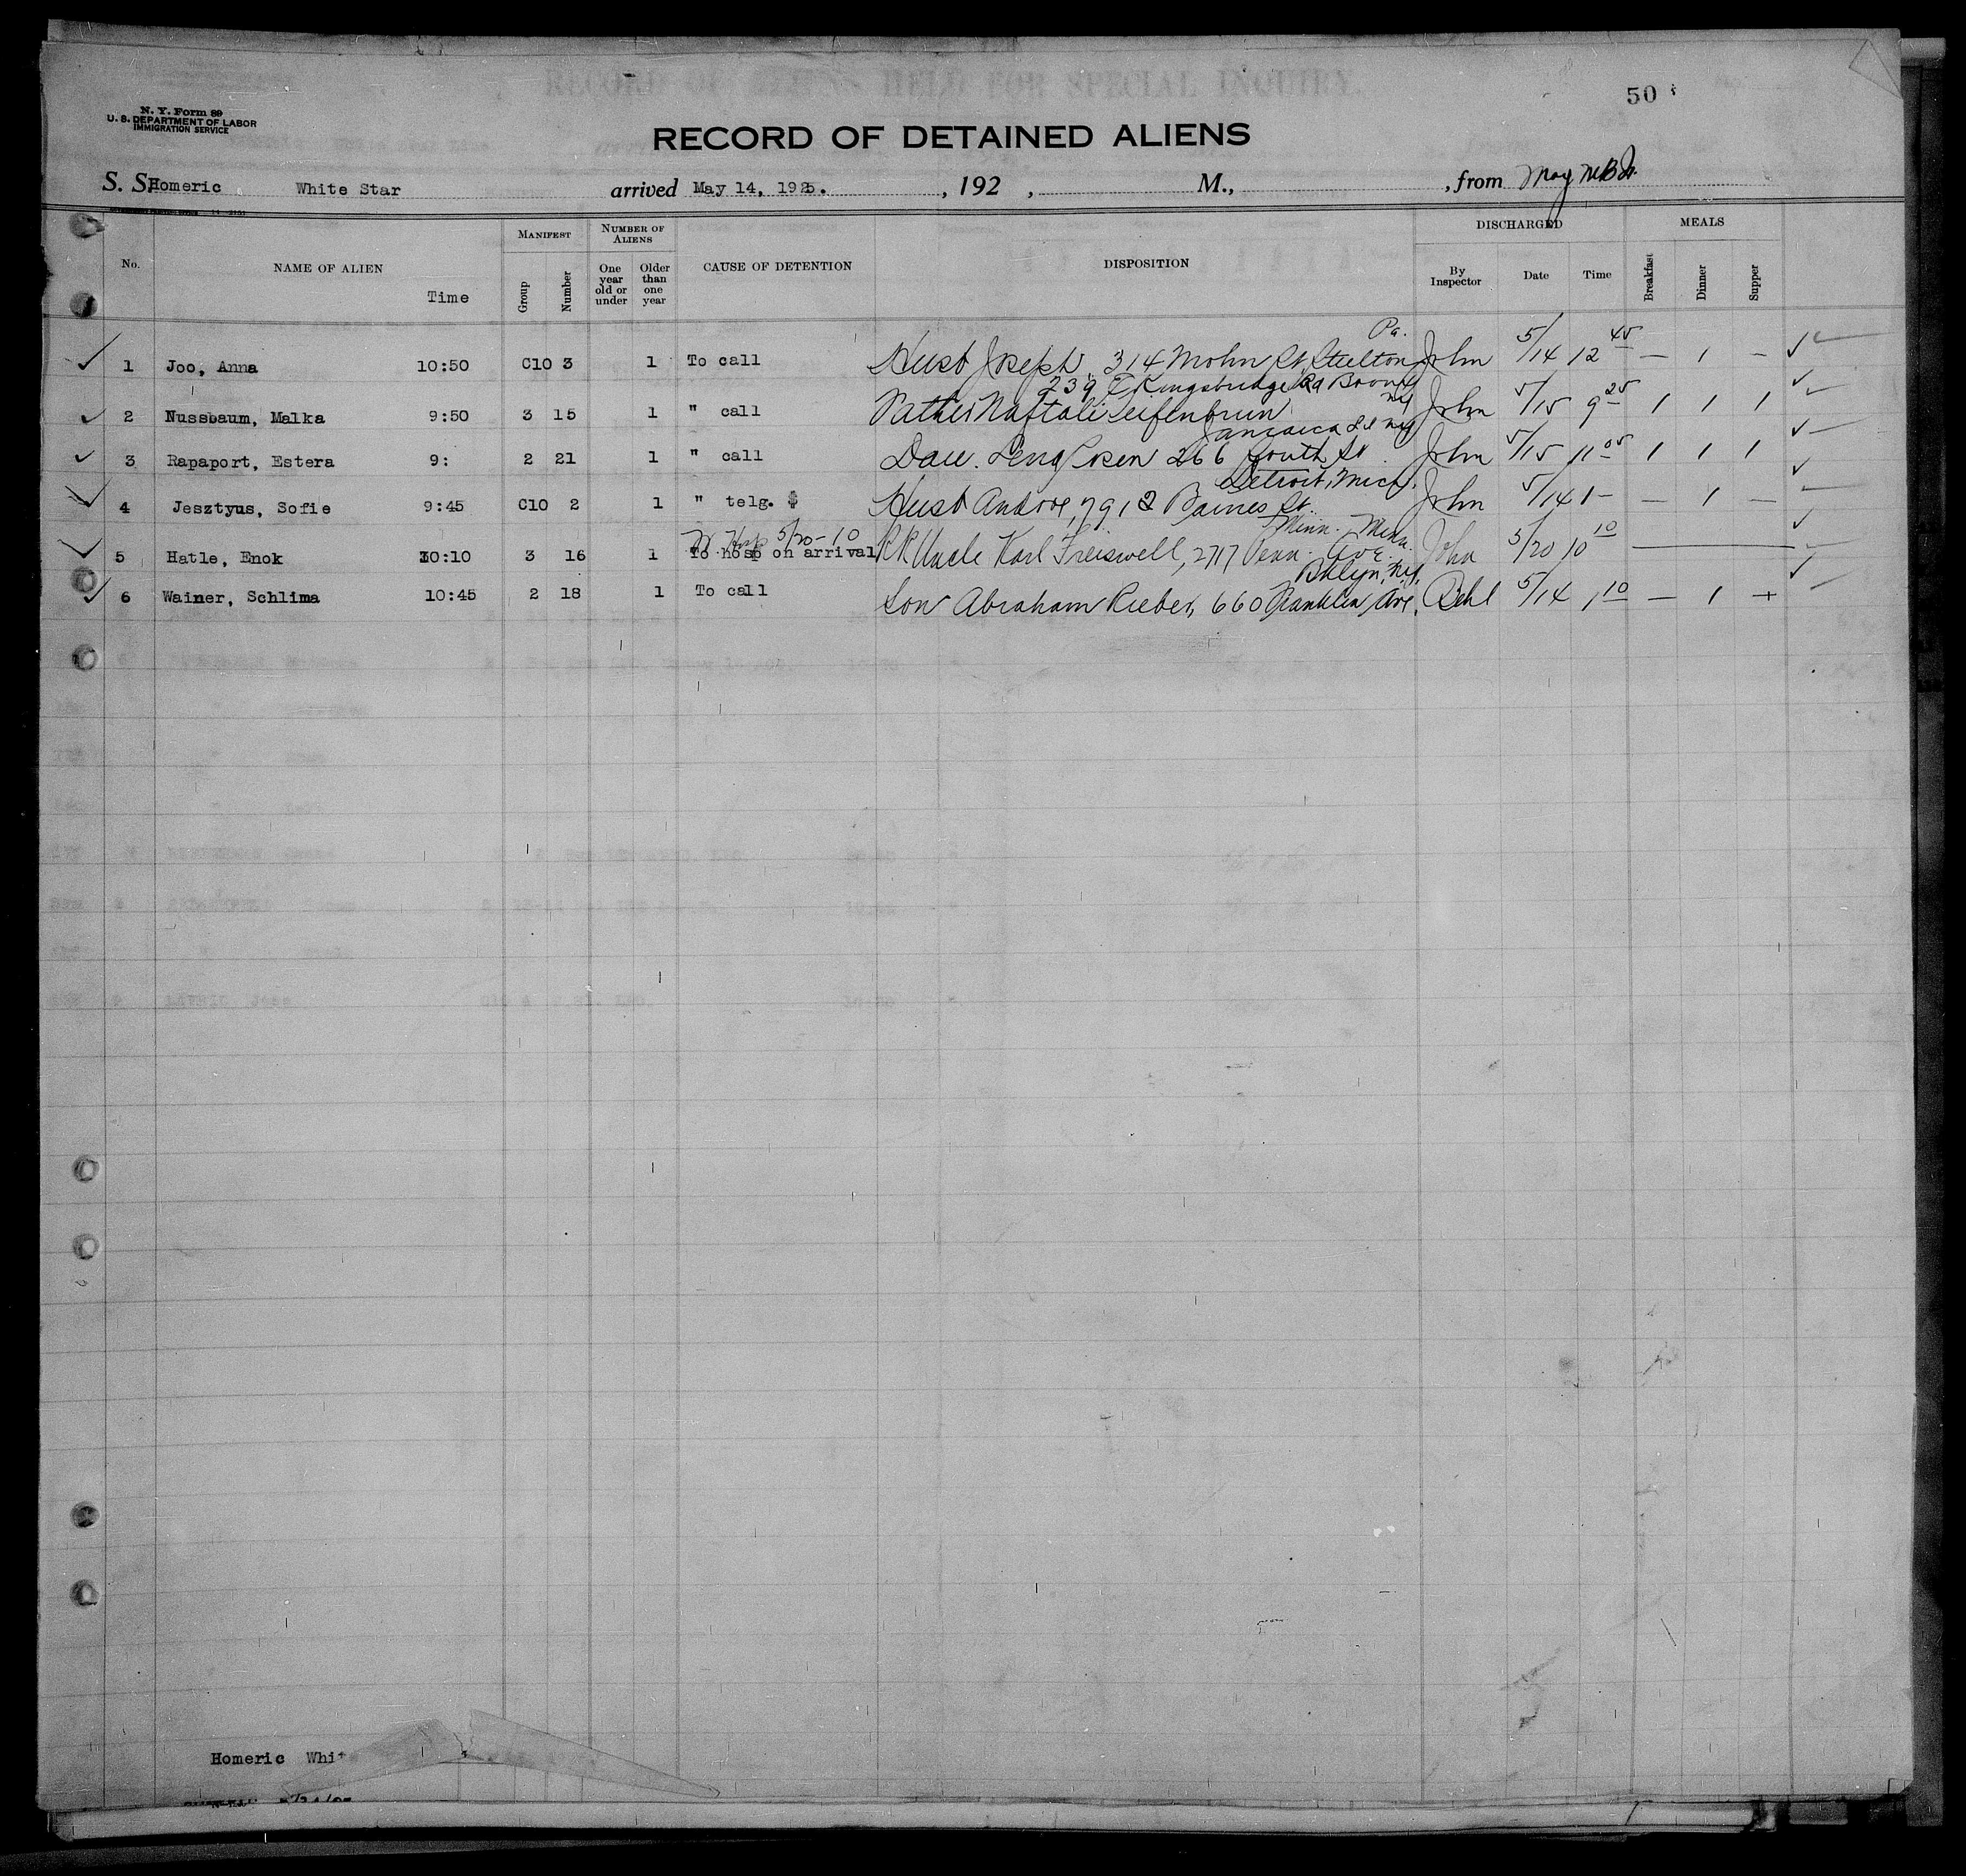 RECORD OF ALIENS HELD FOR SPECIAL INQUIRY.
50
N. Y. Form 89
U. S. DEPARTMENT OF LABOR
IMMIGRATION SERVICE
RECORD OF DETAINED ALIENS
S. S. Homeric White Star arrived May 14, 1925. , 192 , M., , from
No. NAME OF ALIEN Time MANIFEST Group Number NUMBER OF ALIENS One year old or under Older than one year CAUSE OF DETENTION DISPOSITION DISCHARGED By Inspector Date Time MEALS Breakfast Dinner Supper
Pa.
1 Joo, Anna 10:50 C10 3 1 To call Husb Joseph, 314 Mohn St, Steelton John 5/14 12 45 — 1 —
239 E Kingsbridge Rd Bronx NY
2 Nussbaum, Malka 9:50 3 15 1 " call Father Naftali Seifenbrun John 5/15 9 25 1 1 1
Jamaica LI NY
3 Rapaport, Estera 9: 2 21 1 " call Dau. 266 South St John 5/15 11 05 1 1 1
Detroit, Mich.
4 Jesztyus, Sofie 9:45 C10 2 1 " telg. $ Husb Andrew, 7912 St. John 5/14 1 — — 1 —
Hosp 5/20-10 Minn. Minn.
5 Hatle, Enok 10:10 3 16 1 To hosp on arrival RR Uncle Karl Freiswell, 2717 Penn. Ave. John 5/20 10 10
Bklyn, NY.
6 Wainer, Schlima 10:45 2 18 1 To call Son Abraham Rieber, 660 Franklin Ave. 5/14 1 10 — 1 —
Homeric Whit